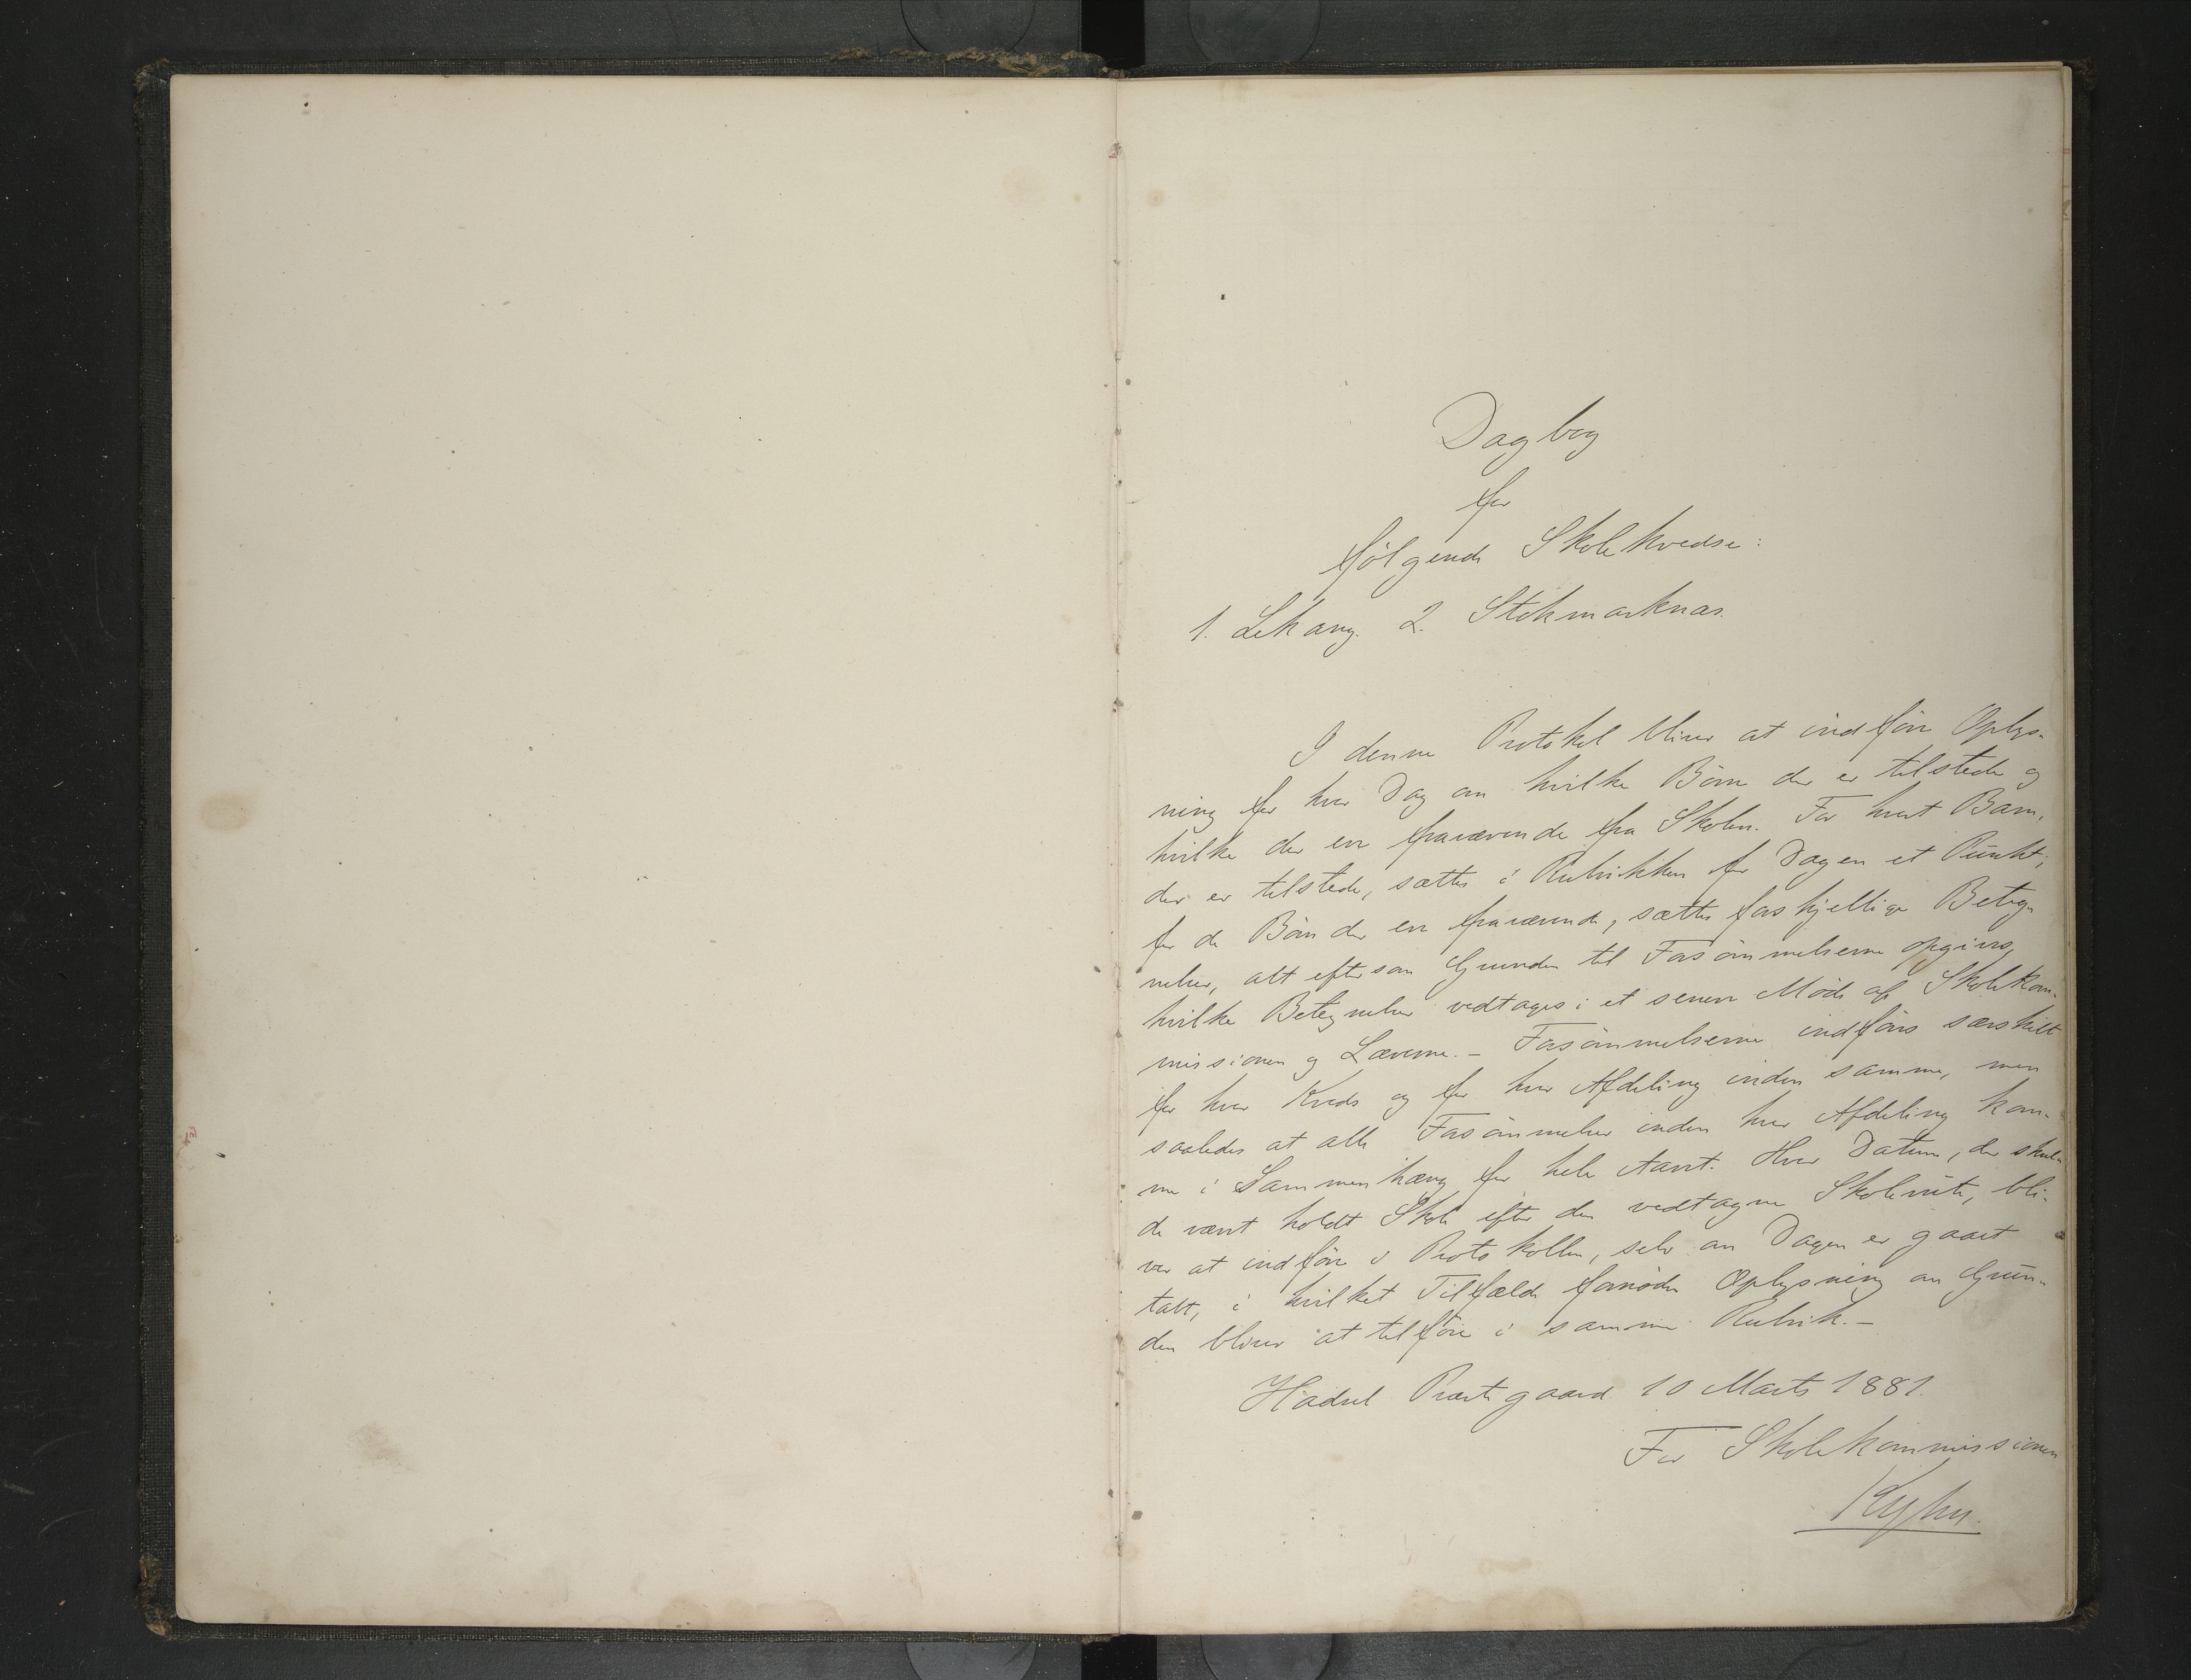 Dagbog
for
følgende Skolekredse:
1. Lekang. 2. Stokmarknæs.
I denne Protokol bliver at indføre Oplys-
ning for hver Dag om hvilke Børn der er tilstede og
hvilke der ere fraværende fra Skolen. For hvert Barn,
der er tilstede, sættes i Rubrikken for Dagen et Punkt;
for de Børn der ere fraværende, sættes forskjellige Beteg-
nelser, alt eftersom Grunden til Forsømmelserne opgives,
hvilke Betegnelser vedtages i et senere Møde af Skolekom-
missionen og Lærerne. – Forsømmelserne indføres særskilt
for hver Kreds og for hver Afdeling inden samme, men
saaledes at alle Forsømmelser inden hver Afdeling kom-
me i Sammenhæng for hele Aaret. Hver Datum, der skulde
de været holdt Skole efter den vedtagne Skolerute, bli-
ver at indføre i Protokollen, selv om Dagen er gaaet
tabt, i hvilket Tilfælde fornøden Oplysning om Grun-
den bliver at tilføre i samme Rubrik. –
Hadsel Præstegaard 10 Marts 1881.
For Skolekommissionen